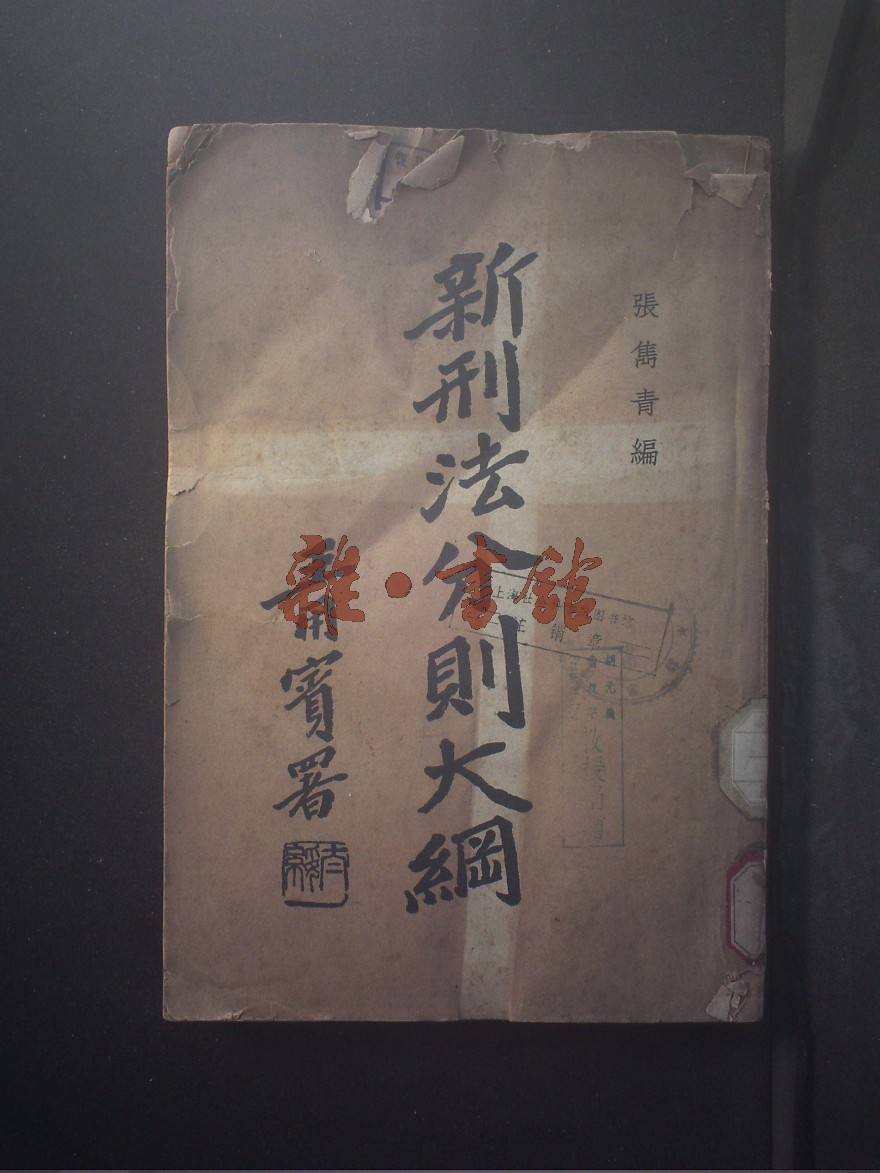 張雋青編
新刑法分則大綱
賓署
雜·書館
上海社
註銷